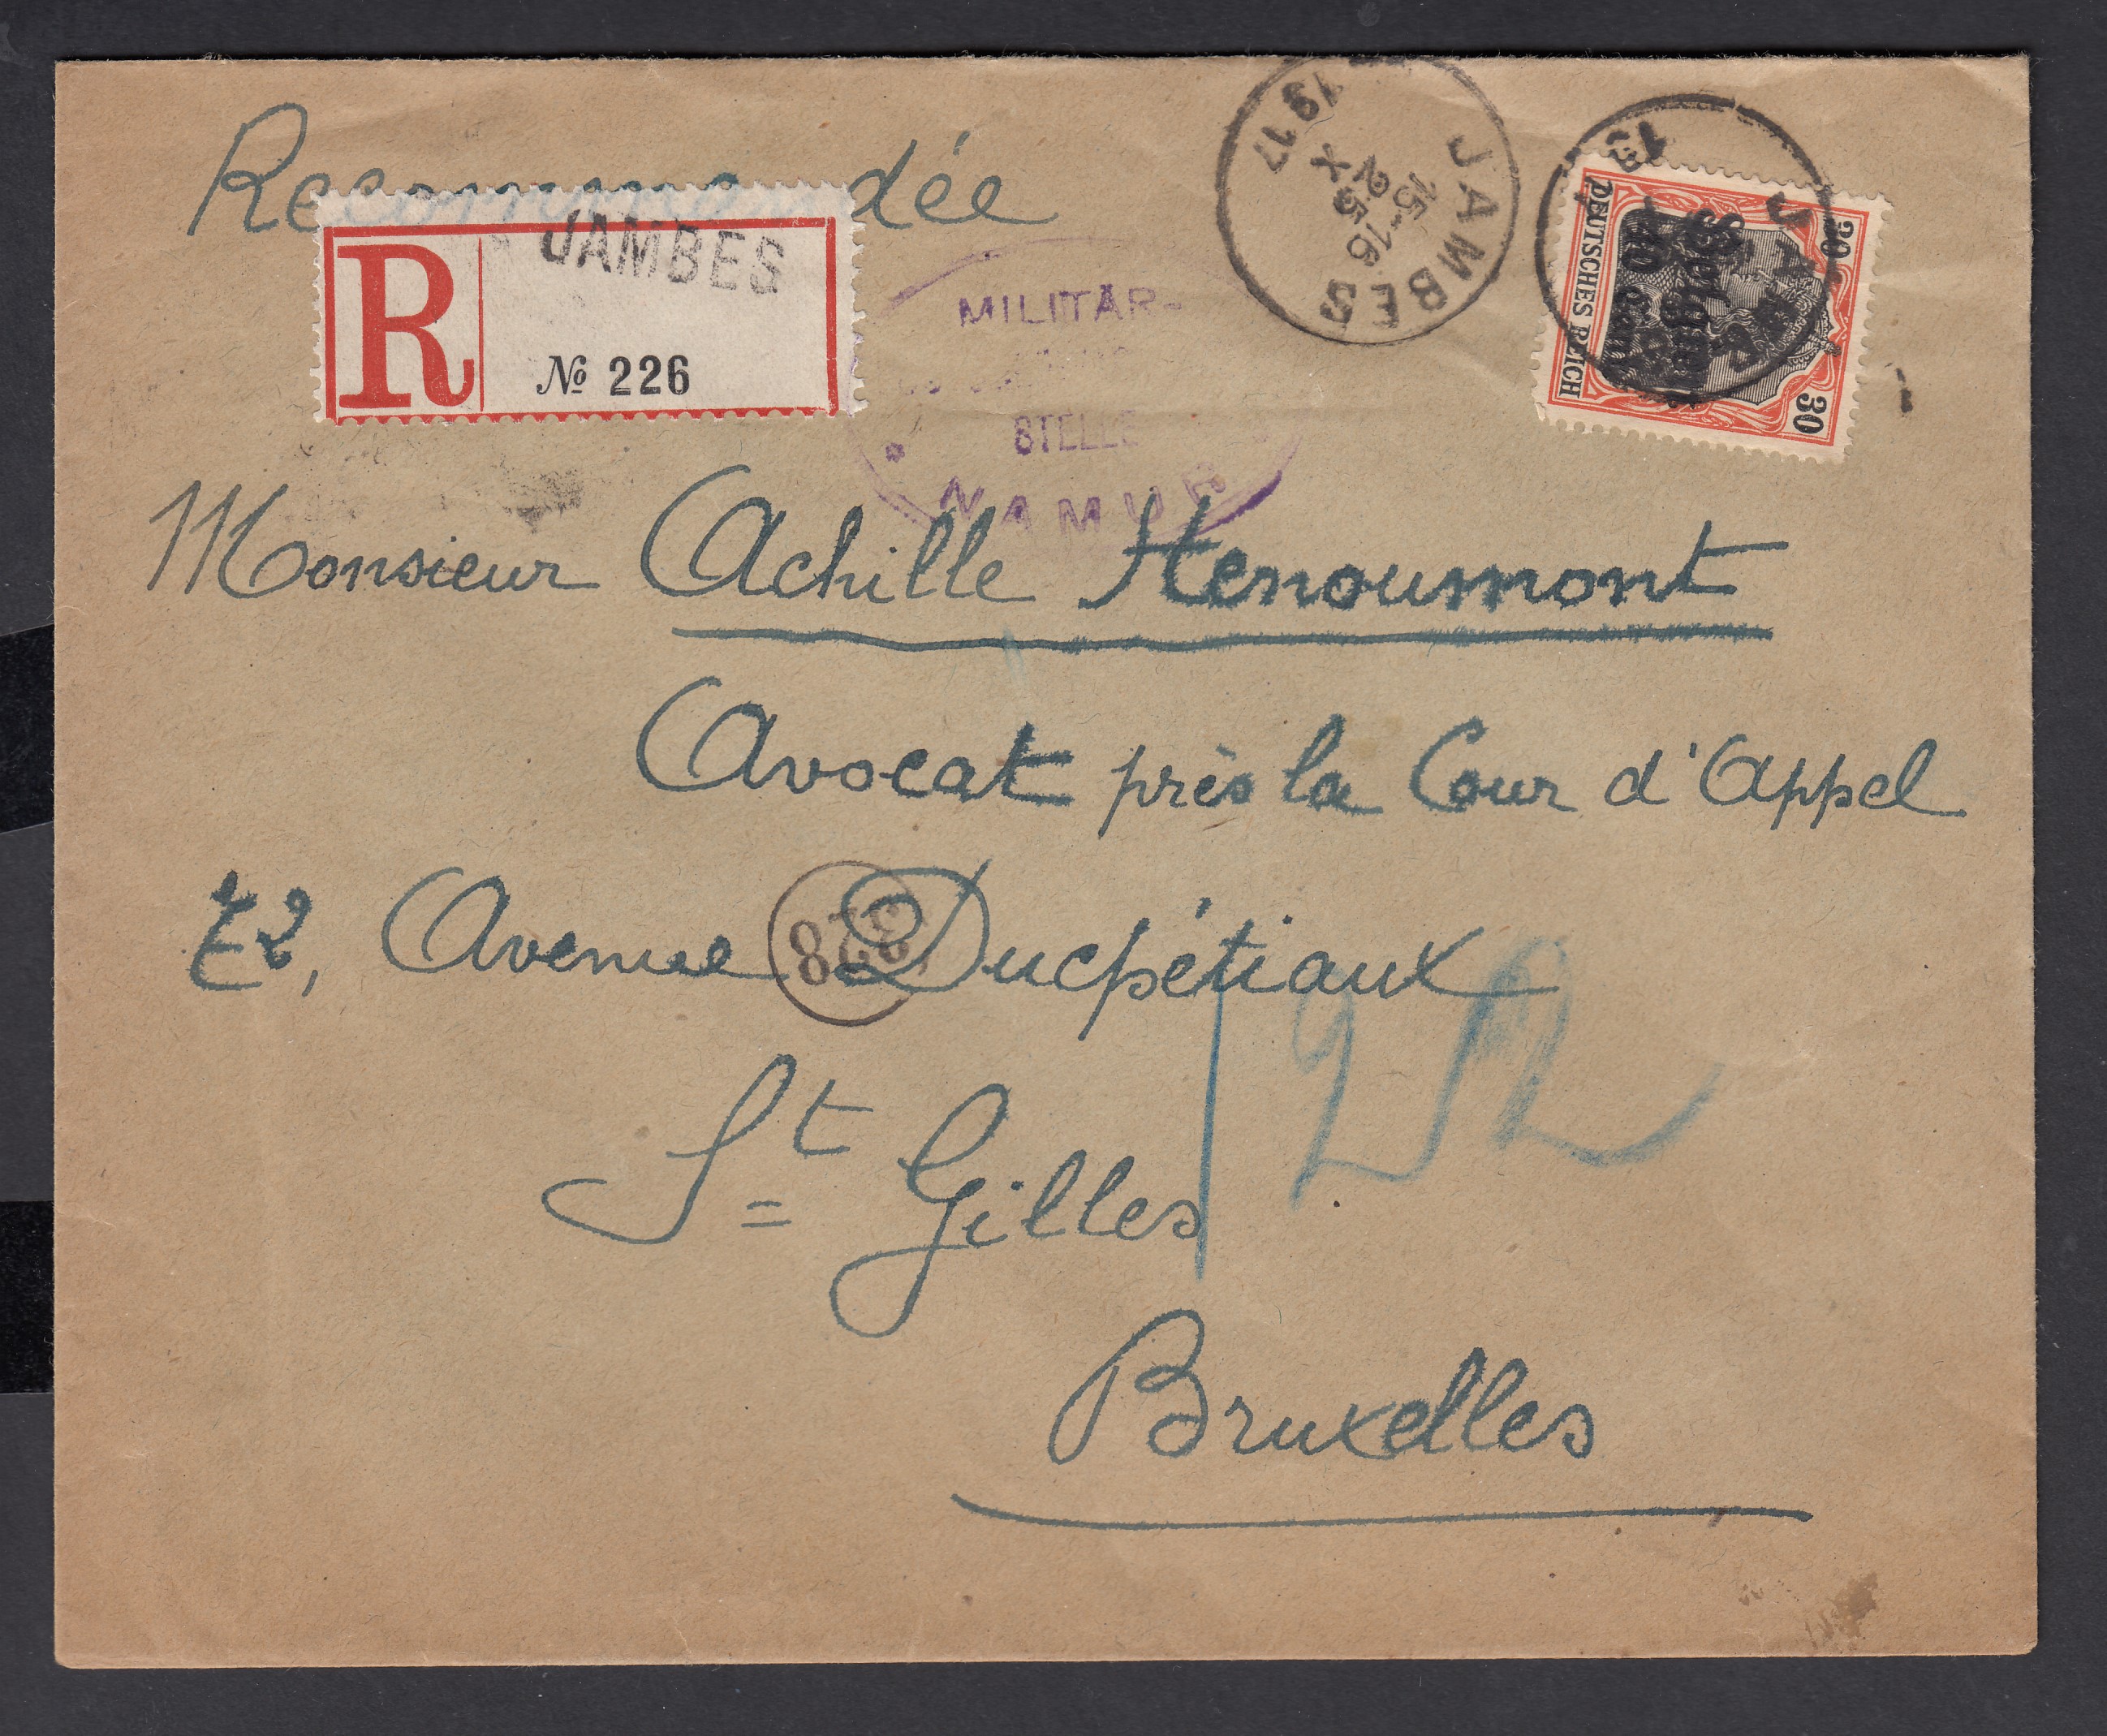 Recommandée
R
JAMBES
№ 226
MILITÄR-
STELLE
NAMUR
JAMBES
15-16
25
X
1917
30
30
DEUTSCHES REICH
Belgien
Monsieur Achille Henoumont
Avocat près la Cour d'Appel
72, Avenue Ducpétiaux
328
St Gilles
Bruxelles